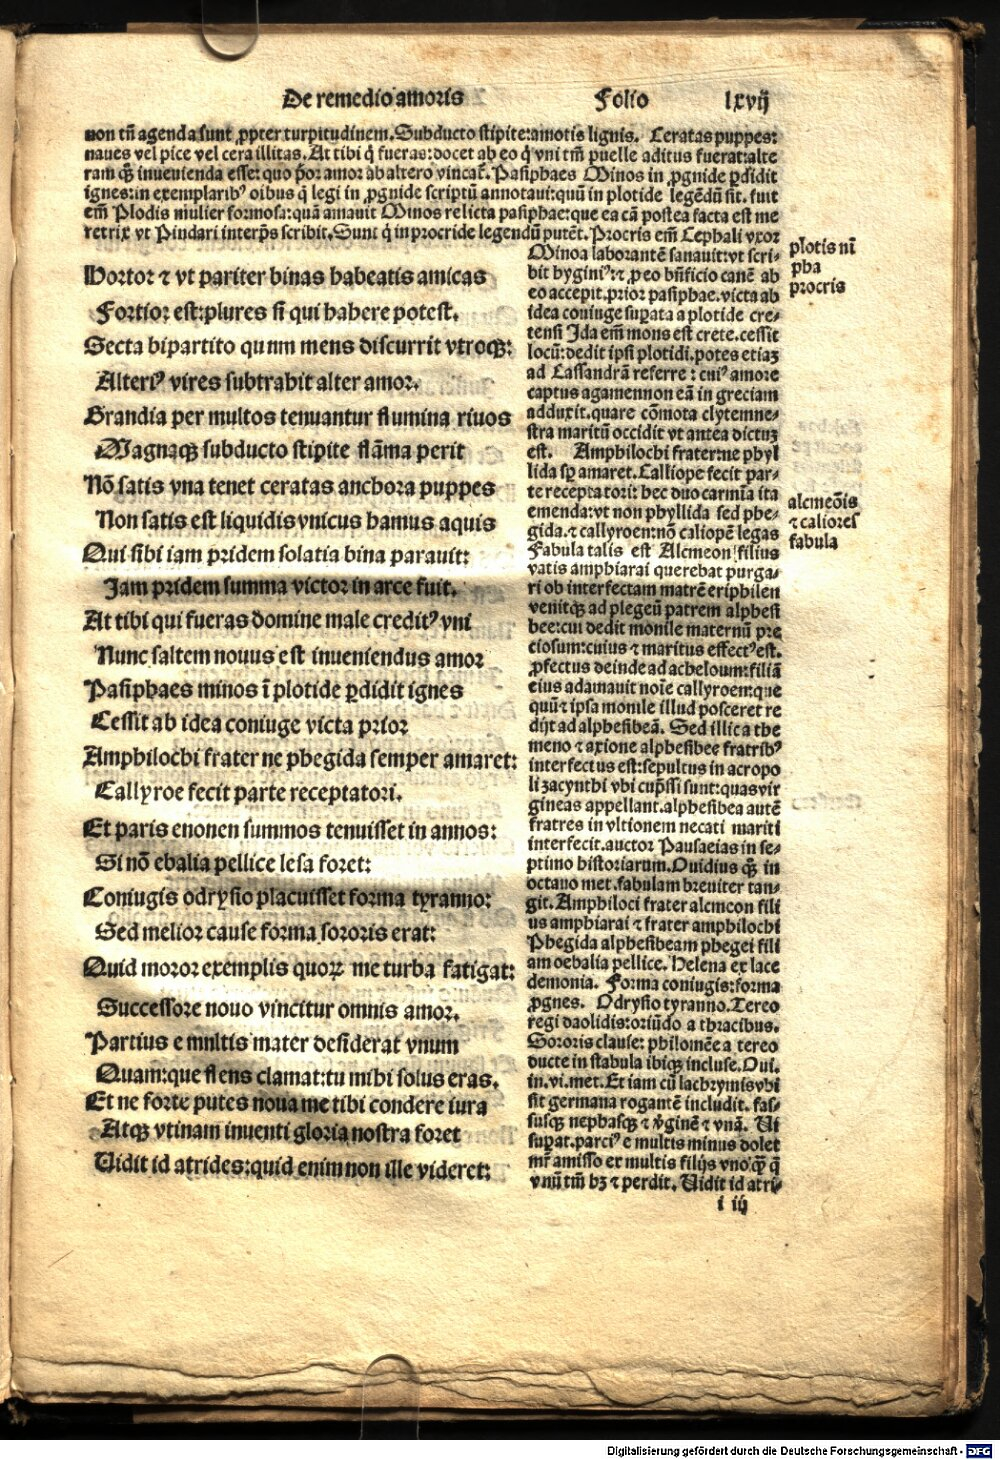 De remedio amoris Folio lxvij
non tñ agenda sunt ꝓpter turpitudinem. Subducto stipite: amotis lignis. Ceratas puppes:
naues vel pice vel cera illitas. At tibi q̃ fueras: docet ab eo q̃ vni tm̃ puelle aditus fuerat: alte
ram qꝫ inueuienda esse: quo p̃or amor ab altero vincat̃. Pasiphaes Minos in ꝓgnide ꝑdidit
ignes: in exemplarib⁹ oibus q̃ legi in ꝓgnide scriptũ annotaui: quũ in plotide legẽdũ sit. fuit
em̃ Plodis mulier formosa: quã amauit Minos relicta pasiphae: que ea cã postea facta est me
retrix vt Pindari interp̃s scribit. Sunt q̃ in procride legendũ putẽt. Procris em̃ Cephali vxor
Minoa laborantẽ sanauit: vt scri-
bit hygini⁹: ⁊ ꝓ eo bñficio canẽ ab
eo accepit. prior pasiphae. victa ab
idea coniuge suꝑata a plotide cre-
tensi Ida em̃ mons est crete. cessit
locũ: dedit ipsi plotidi. potes etiaꝫ
ad Cassandrã referre: cui⁹ amore
captus agamennon eã in greciam
adduxit. quare cõmota clytemne-
stra maritũ occidit vt antea dictuꝫ
est. Amphilochi frater: ne phyl
lida sꝑ amaret. Calliope fecit par-
te receptatori: hec duo carmĩa ita
emenda: vt non phyllida sed phe-
gida. ⁊ callyroen: nõ caliopẽ legas
Fabula talis est Alcmeon filius
vatis amphiarai querebat purga-
ri ob interfectam matrẽ eriphilen
venitqꝫ ad plegeũ patrem alphesi
bee: cui dedit monile maternũ pre
ciosum: cuius ⁊ maritus effect⁹ est.
ꝓfectus deinde ad acheloum: filiã
eius adamauit noĩe callyroem: que
quũ ⁊ ipsa monile illud posceret re
dijt ad alphesibeã. Sed illic a the
meno ⁊ axione alphesibee fratrib⁹
interfectus est: sepultus in acropo
li zacynthi vbi cup̃ssi sunt: quas vir
gineas appellant. alphesibea autẽ
fratres in vltionem necati mariti
interfecit. auctor Pausaeias in se-
ptimo historiarum. Ouidius qꝫ in
octauo met. fabulam breuiter tan-
git. Amphiloci frater alcmeon fili
us amphiarai ⁊ frater amphilochi
Phegida alphesibeam phegei fili
am oebalia pellice. Helena ex lace
demonia. Forma coniugis: forma
ꝓgnes. Odrysio tyranno. Tereo
regi daolidis: oriũdo a thracibus.
Sororis clause: philomẽe a tereo
ducte in stabula ibiqꝫ incluse. Oui.
in. vi. met. Et iam cũ lachrymis vbi
sit germana rogantẽ includit. fas-
susqꝫ nephasqꝫ ⁊ v̾ginẽ ⁊ vnã. Vi
suꝑat. parci⁹ e multis minus dolet
mr̃ amisso ex multis filijs vno qꝫ q̃
vnũ tm̃ hꝫ ⁊ perdit. Vidit id atri-
i iij
Hortor ⁊ vt pariter binas habeatis amicas
Fortior est: plures si qui habere potest.
Secta bipartito quum mens discurrit vtroqꝫ:
Alteri⁹ vires subtrahit alter amor.
Grandia per multos tenuantur flumina riuos
Magnaqꝫ subducto stipite flãma perit
Nõ satis vna tenet ceratas anchora puppes
Non satis est liquidis vnicus hamus aquis
Qui sibi iam pridem solatia bina parauit:
Jam pridem summa victor in arce fuit.
At tibi qui fueras domine male credit⁹ vni
Nunc saltem nouus est inueniendus amor
Pasiphaes minos ĩ plotide ꝑdidit ignes
Cessit ab idea coniuge victa prior
Amphilochi frater ne phegida semper amaret:
Callyroe fecit parte receptatori.
Et paris enonen summos tenuisset in annos:
Si nõ ebalia pellice lesa foret:
Coniugis odrysio placuisset forma tyranno:
Sed melior cause forma sororis erat:
Quid moror exemplis quoꝝ me turba fatigat:
Successore nouo vincitur omnis amor.
Partius e multis mater desiderat vnum
Quam: que flens clamat: tu mihi solus eras.
Et ne forte putes noua me tibi condere iura
Atqꝫ vtinam inuenti gloria nostra foret
Uidit id atrides: quid enim non ille videret:
plotis nĩ
pha
procris
alcmeõis
⁊ caliores
fabula
Digitalisierung gefördert durch die Deutsche Forschungsgemeinschaft - DFG